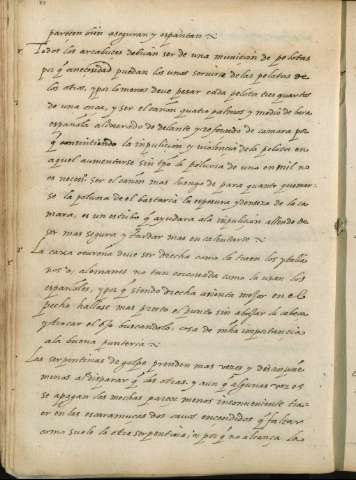 parecen bien aseguran y espantan
Todos los arcabuces debrian ser de una municion de pelotas
por q̃ a necesidad puedan los unos servirse de las pelotas de
los otros, y por lo menos deve pesar cada pelota tres quartos
de una onza, y ser el cañon quatro palmos y medio de bara
española al derredor de delante y reforçado de camara por
q̃ la impulsion y violencia de la pelota en
aquel aumentarse sin tpo la poluora de uno en mil no
es necess.º ser el cañon mas luengo de para quanto quemar
se la poluora de el bastaria la y de la ca
mara, es un q̃ ayudara a la impulsion allende de
ser mas segura y tardar mas en calentarse
La caxa o curueña deve ser drecha como la traen los ytalia
nos o, alemanes no tan corcovada como la usan los
españoles, y por q̃ siendo drecha asienta mejor en el
pecho hallase mas presto el punto sin abaxar la cabeça
y torcar el ojo buscandolo, cosa de mcha importancia
a la buena punteria
Las serpentinas de golpe prenden mas vezes y desasosiegan
menos al disparar q̃ las otras, y aun q̃ algunas vezes
se apagan las mechas parece menos inconveniente tra
er en las escaramuças dos cavos encendidos q̃ faltar
como suele la otra serpentina por q̃ no alcança la